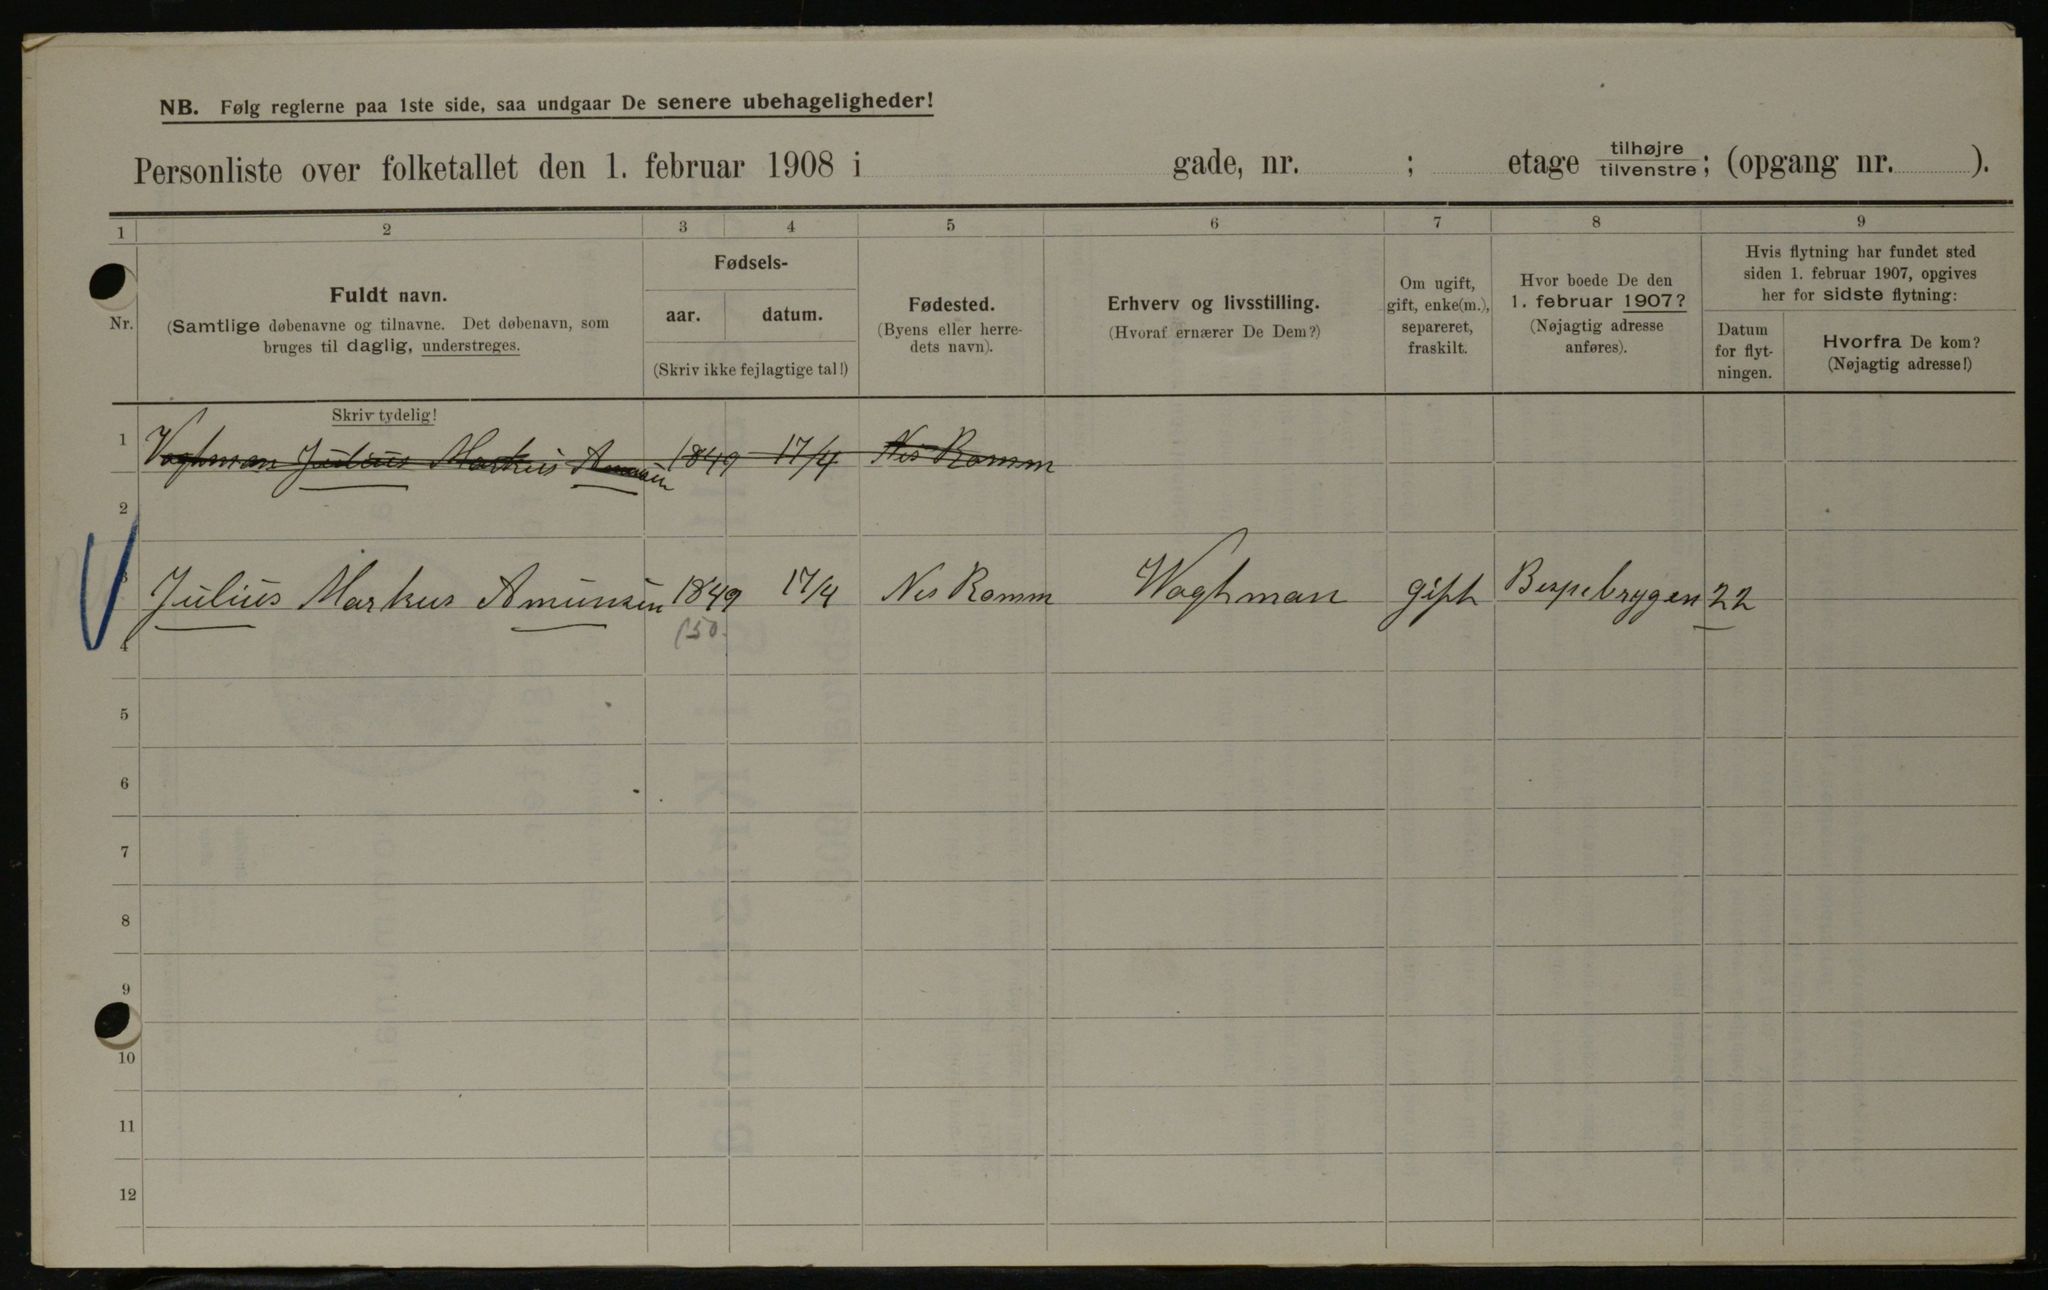 NB. Følg reglerne paa 1ste side, saa undgaar De senere ubehageligheder!
Personliste over folketallet den 1. februar 1908 i gade, nr. ; etage tilhøjre/tilvenstre; (opgang nr. ).
1 2 3 4 5 6 7 8 9
Nr.
Fuldt navn.
(Samtlige døbenavne og tilnavne. Det døbenavn, som
bruges til daglig, understreges.
Fødsels-
aar. datum.
(Skriv ikke fejlagtige tal!)
Fødested.
(Byens eller herre-
dets navn).
Erhverv og livsstilling.
(Hvoraf ernærer De Dem?)
Om ugift,
gift, enke(m.),
separeret,
fraskilt.
Hvor boede De den
1. februar 1907?
(Nøjagtig adresse
anføres).
Hvis flytning har fundet sted
siden 1. februar 1907, opgives
her for sidste flytning:
Datum
for flyt-
ningen.
Hvorfra De kom?
(Nøjagtig adresse!)
Skriv tydelig!
1 Vaghman Julius Markus Amunsen 1849 17/4 Nes Romm
2
3 Julius Markus Amunsen 1849 17/4 Nes Romm Waghman gift Bispebrygen 22
150.
4
5
6
7
8
9
10
11
12